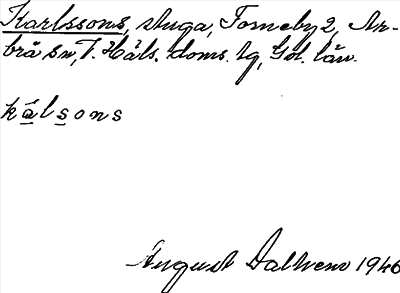 Karlssons, stuga, Torneby 2, Ar-
brå sn, V. Häls. doms. lg, Gvl. län.
kālsons
August Dalhems 1946